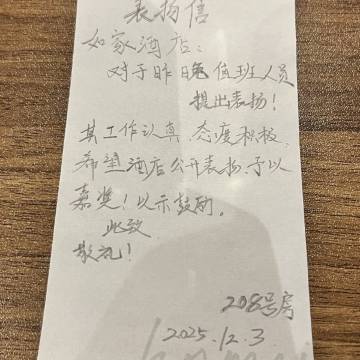 表扬信
如家酒店:
对于昨晚值班人员
提出表扬!
其工作认真、态度积极,
希望酒店公开表扬、予以
嘉奖!以示鼓励。
此致
敬礼!
208号房
2025.12.3